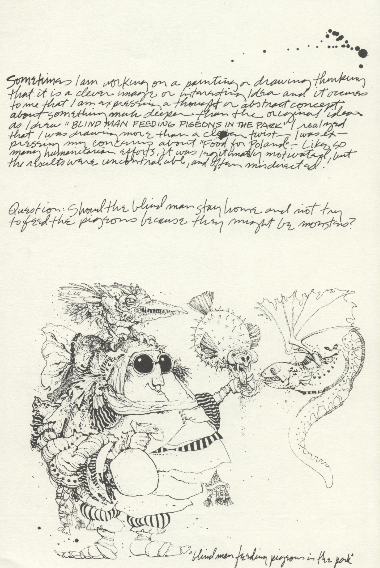 Sometimes I am working on a painting or drawing thinking
that it is a clever image or interesting idea and it occurs
to me that I am expressing a thought or abstract concept
about something much deeper than the original idea
as I drew "BLIND MAN FEEDING PIGEONS IN THE PARK" I realized
that I was drawing more than a clever twist. I was ex-
pressing my concerns about "Food for Poland" - Like so
many humanitarian efforts, it was legitimately motivated, but
the results were uncontrolable, and often misdirected.
Question: Should the blind man stay home and not try
to feed the pigeons because they might be monsters?
"blind man feeding pigeons in the park"